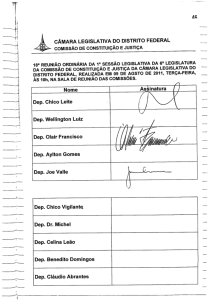 CÂMARA LEGISLATIVA DO DISTRITO FEDERAL
COMISSÃO DE CONSTITUIÇÃO E JUSTIÇA
ORDINÁRIA DA 1ª SESSÃO LEGISLATIVA DA 6ª LEGISLATURA
DA COMISSÃO DE CONSTITUIÇÃO E JUSTIÇA DA CÂMARA LEGISLATIVA DO
DISTRITO FEDERAL, REALIZADA EM 09 DE AGOSTO DE 2011, TERÇA-FEIRA,
ÀS 10h, NA SALA DE REUNIÃO DAS COMISSÕES.
Nome Assinatura
Dep. Chico Leite
Dep. Wellington Luiz
Dep. Olair Francisco
Dep. Aylton Gomes
Dep. Joe Valle
Dep. Chico Vigilante
Dep. Dr. Michel
Dep. Celina Leão
Dep. Benedito Domingos
Dep. Cláudio Abrantes